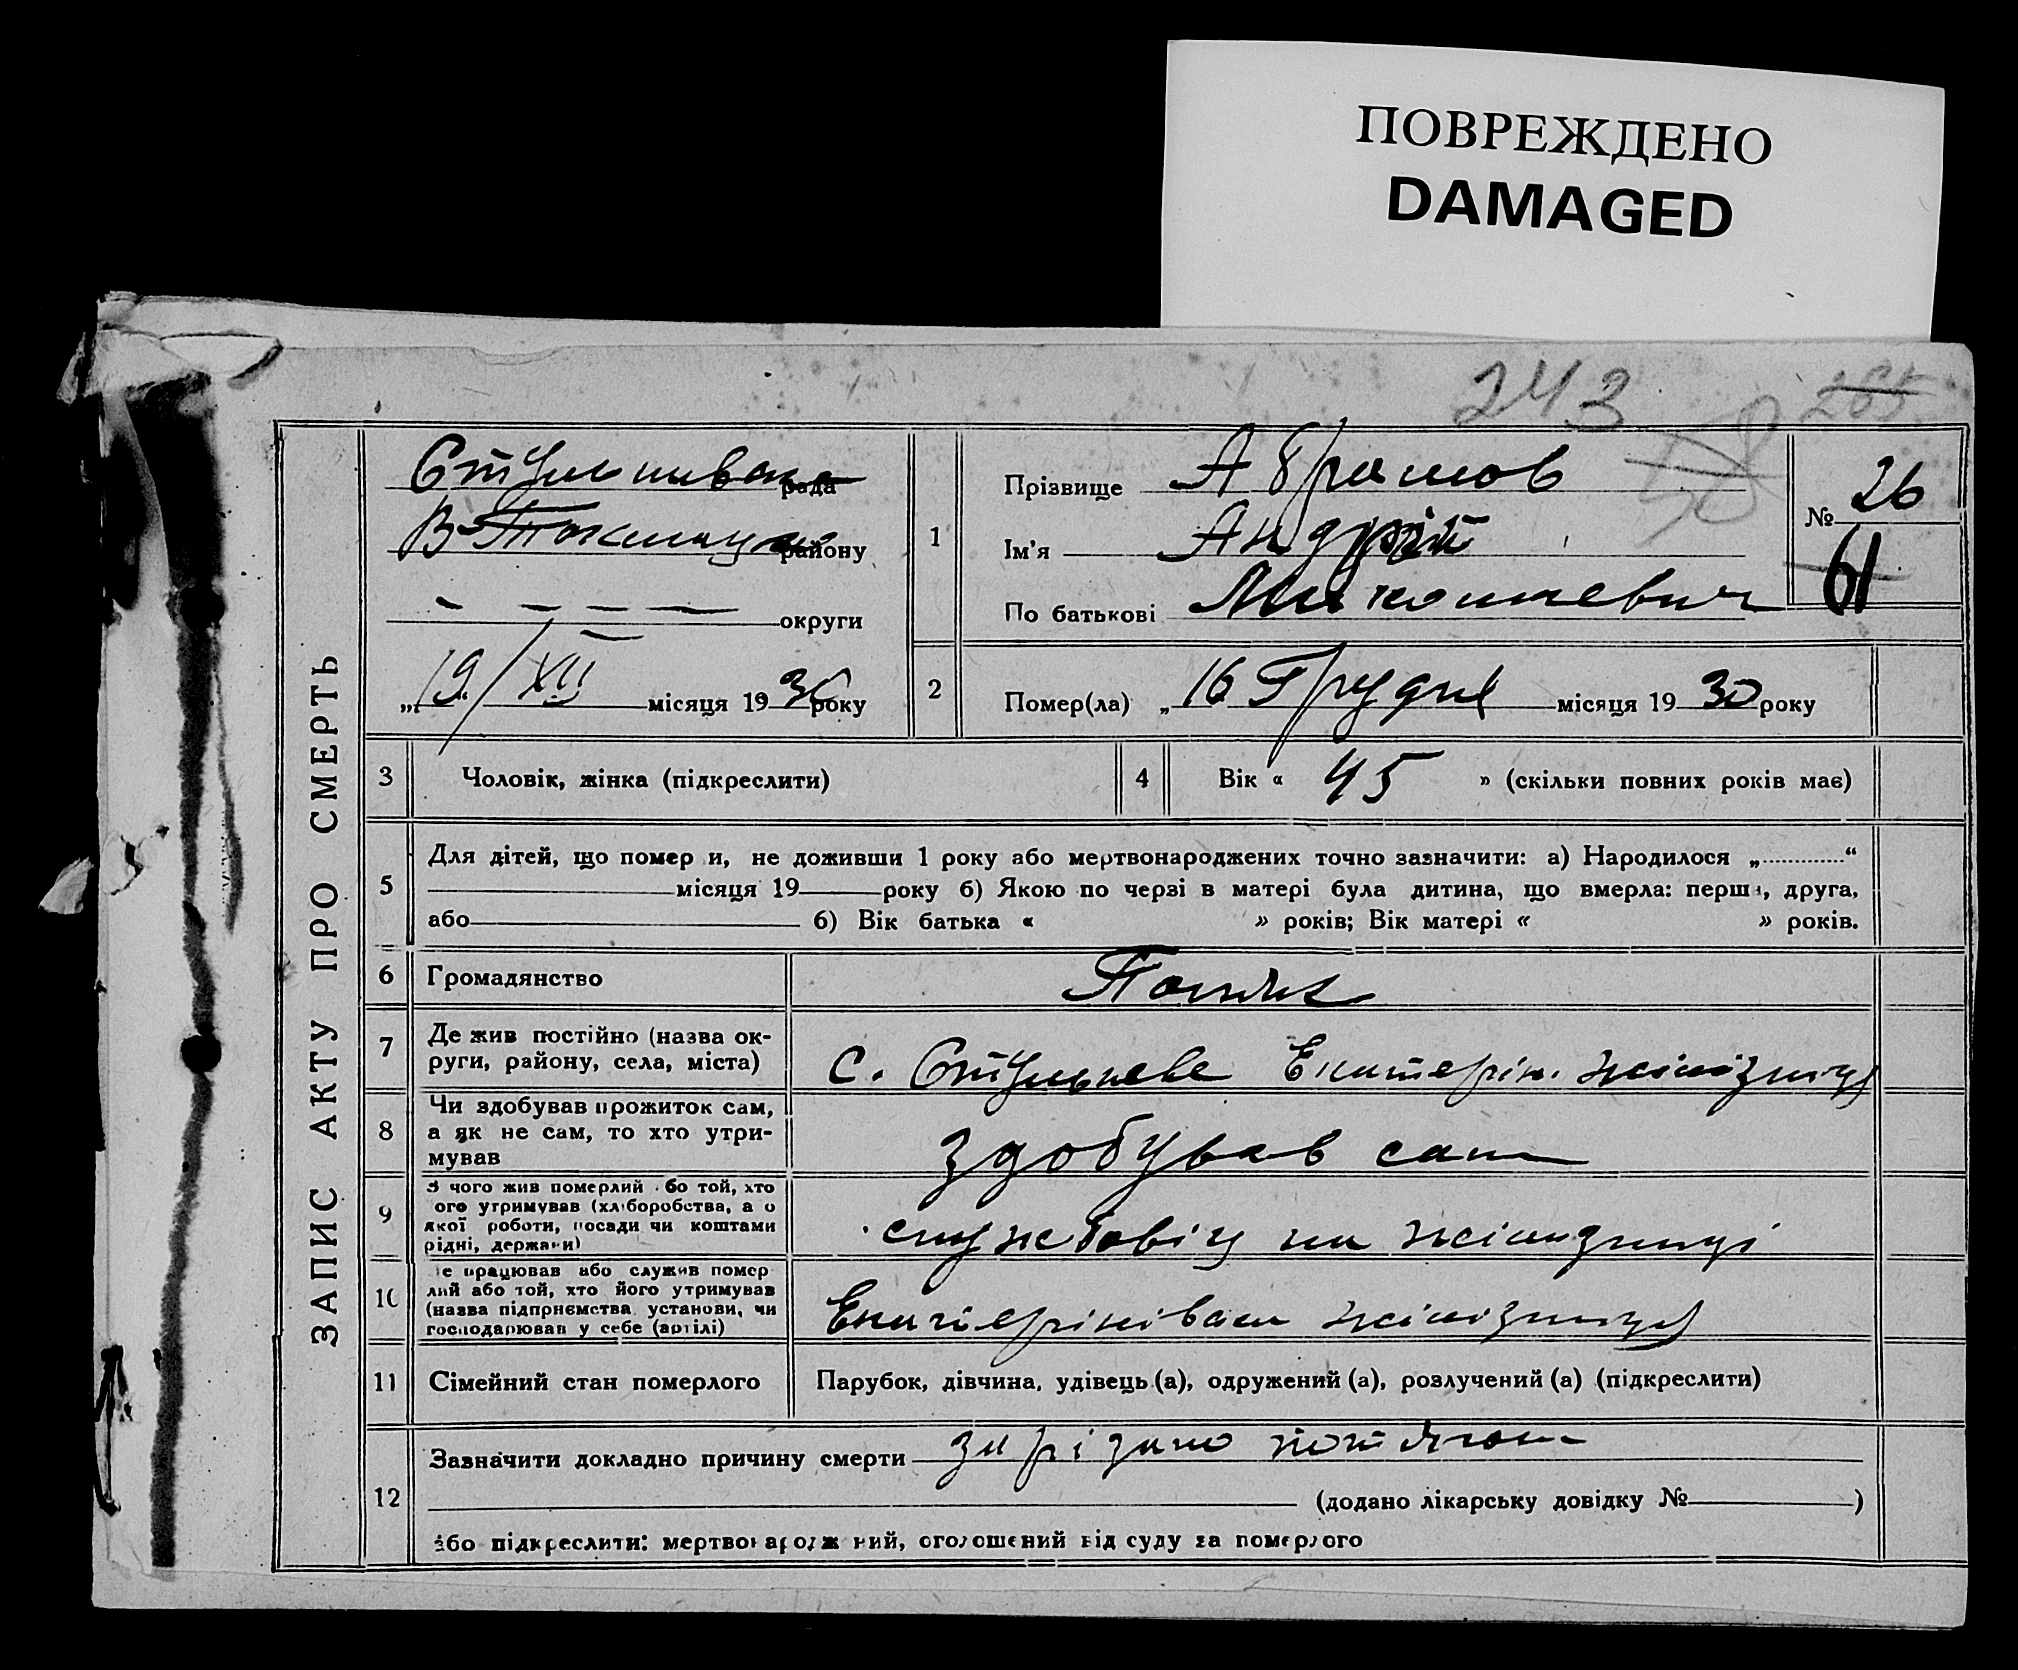 ПОВРЕЖДЕНО
DAMAGED
243
265
58
ЗАПИС АКТУ ПРО СМЕРТЬ
рада
В-Токмацький району
— — — — округи
„19/XII місяця 1930 року
1
Прізвище Абрамов
Ім'я Андрій
По батькові
№ 26
61
2
Помер(ла) „16 Грудня місяця 1930 року
3
Чоловік, жінка (підкреслити)
4
Вік « 45 » (скільки повних років має)
5
Для дітей, що помер и, не доживши 1 року або мертвонароджених точно зазначити: а) Народилося „ “
місяця 19 року б) Якою по черзі в матері була дитина, що вмерла: перша, друга,
або б) Вік батька « » років; Вік матері « » років.
6
Громадянство
7
Де жив постійно (назва ок-
руги, району, села, міста)
с. Стульнєве Екатерін. залізниці
8
Чи здобував прожиток сам,
а як не сам, то хто утри-
мував
здобував сам
9
З чого жив померлий бо той, хто
ого утримував (хліборобства, а о
якої роботи, посади чи коштами
рідні, держави)
на залізниці
10
е працював або служив помер
лий або той, хто його утримував
(назва підприємства установи, чи
господарював у себе (артілі)
залізниця
11
Сімейний стан померлого
Парубок, дівчина, удівець (а), одружений (а), розлучений (а) (підкреслити)
12
Зазначити докладно причину смерти зарізано потягом
(додано лікарську довідку № )
або підкреслити: мертвонароджений, оголошений від суду за померлого